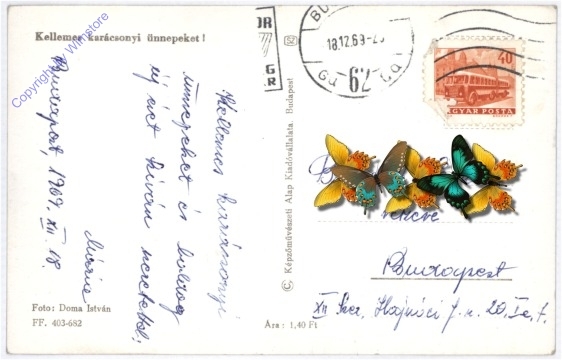 Kellemes karácsonyi ünnepeket!
Copyright by Wlmstore
Kellemes karácsonyi
ünnepeket és boldog
új évet kíván szeretettel:
Mária
Budapest, 1969. XII. 18.
Foto: Doma István
FF. 403-682
© Képzőművészeti Alap Kiadóvállalata, Budapest
Ára: 1,40 Ft
BU
18.12.69-2
62
40
MAGYAR POSTA
részére
Budapest
XII. Ker. Hajnóczi J. u. 20. I. e. 1.